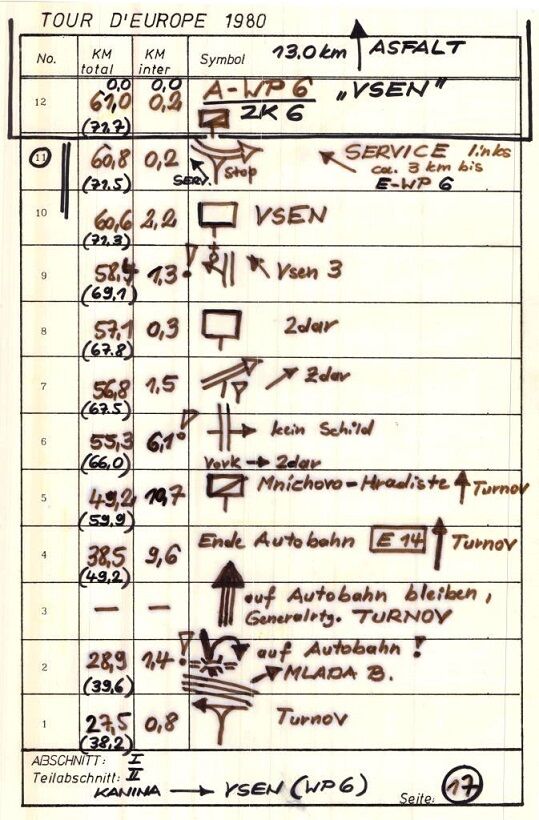 TOUR D'EUROPE 1980
No. KM total KM inter Symbol 13.0 km ASFALT
0,0 0,0
12 61,0 0,2 A-WP 6 „VSEN"
(71.7) ZK 6
11 60,8 0,2 SERVICE links
(71.5) SERV. Stop ca. 3 km bis
E-WP 6
10 60,6 2,2 VSEN
(71.3)
9 58,4 1,3 ! Vsen 3
(69,1)
8 57,1 0,3 Zdar
(67.8)
7 56,8 1,5 Zdar
(67.5)
6 55,3 6,1 ! kein Schild
(66,0) Vork → Zdar
5 49,2 10,7 Mnichovo-Hradiste ↑ Turnov
(59,9)
4 38,5 9,6 Ende Autobahn E 14 ↑ Turnov
(49,2)
3 — — auf Autobahn bleiben,
Generalrtg. TURNOV
2 28,9 1,4 ! auf Autobahn !
(39,6) MLADA B.
1 27,5 0,8 Turnov
(38,2)
ABSCHNITT: I
Teilabschnitt: II
KANINA → VSEN (WP 6)
Seite: 17